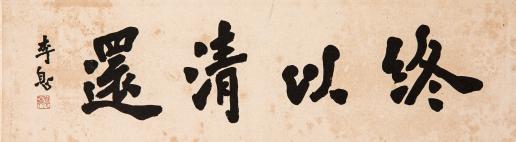 終以清還
李息